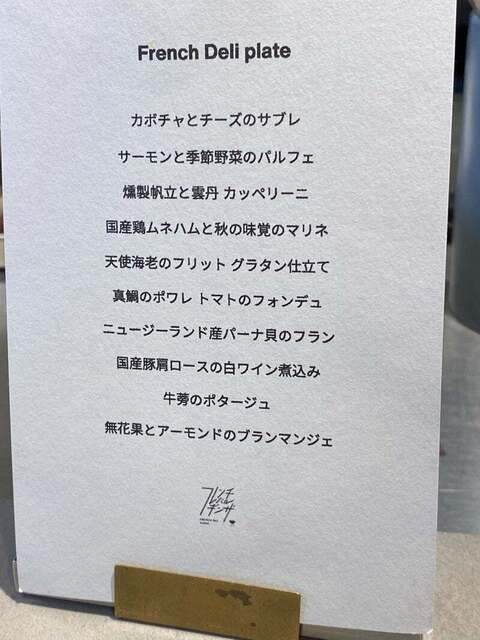 French Deli plate
カボチャとチーズのサブレ
サーモンと季節野菜のパルフェ
燻製帆立と雲丹 カッペリーニ
国産鶏ムネハムと秋の味覚のマリネ
天使海老のフリット グラタン仕立て
真鯛のポワレ トマトのフォンデュ
ニュージーランド産パーナ貝のフラン
国産豚肩ロースの白ワイン煮込み
牛蒡のポタージュ
無花果とアーモンドのブランマンジェ
フレンチ
バル
ギンザ